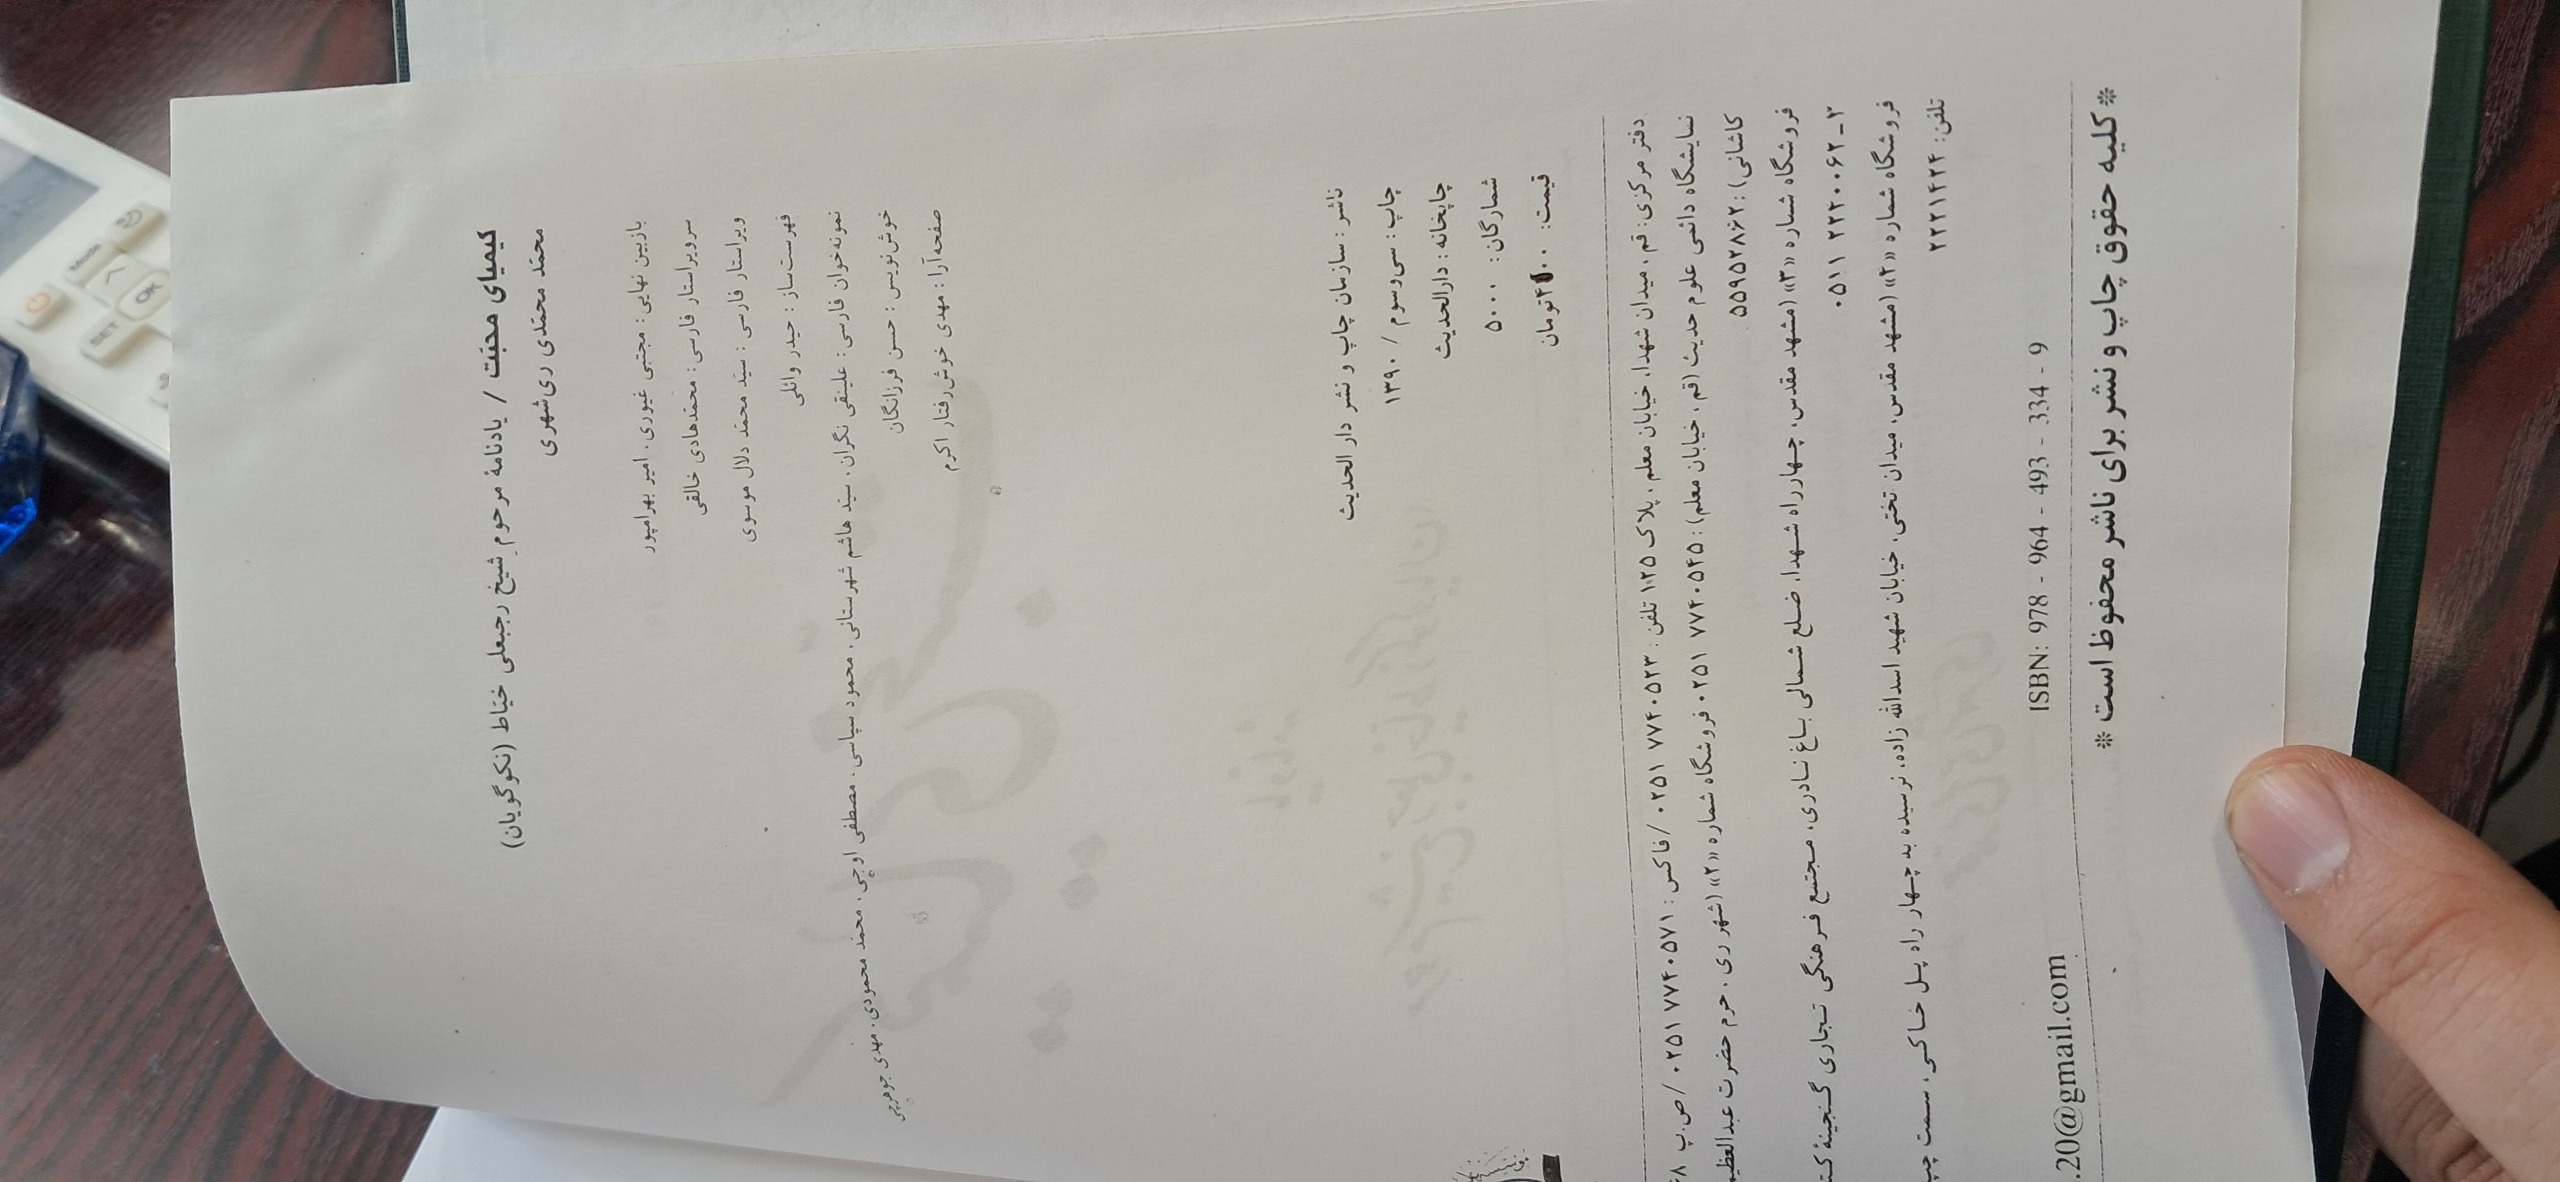 کیمیای محبّت / یادنامهٔ مرحومِ شیخ رجبعلی خیّاط (نکوگویان)
محمّد محمّدی ری‌شهری
بازبین نهایی: مجتبی غیوری، امیر بهرامپور
سرویراستار فارسی: محمّدهادی خالقی
ویراستار فارسی: سیّد محمّد دلال موسوی
فهرست‌ساز: حیدر وائلی
نمونه‌خوان فارسی: علینقی نگران، سیّد هاشم شهرستانی، محمود سپاسی، مصطفی اوجی، محمّد محمودی، مهدی جوهرچی
خوش‌نویس: حسن فرزانگان
صفحه‌آرا: مهدی خوش‌رفتار اکرم
ناشر: سازمان چاپ و نشر دار الحدیث
چاپ: سی‌وسوم / ۱۳۹۰
چاپخانه: دارالحدیث
شمارگان: ۵۰۰۰
قیمت: تومان
دفتر مرکزی: قم، میدان شهدا، خیابان معلم، پلاک ۱۲۵ تلفن: ۷۷۴۰۵۲۳ ۰۲۵۱ / فاکس: ۷۷۴۰۵۷۱ ۰۲۵۱ / ص.پ
نمایشگاه دائمی علوم حدیث (قم، خیابان معلم): ۷۷۴۰۵۴۵ ۰۲۵۱ فروشگاه شماره «۲» (شهر ری، حرم حضرت
کاشانی): ۵۵۹۵۲۸۶۲
فروشگاه شماره «۳» (مشهد مقدس، چهارراه شهدا، ضلع شمالی باغ نادری، مجتمع فرهنگی تجاری گنجینهٔ
۲۲۴۰۰۶۲-۳ ۰۵۱۱
فروشگاه شماره «۴» (مشهد مقدس، میدان تختی، خیابان شهید اسدالله زاده، نرسیده به چهار راه پل خاکی، سمت
تلفن: ۲۲۲۱۴۲۴
.20@gmail.com ISBN: 978 - 964 - 493 - 334 - 9
* کلیه حقوق چاپ و نشر برای ناشر محفوظ است *